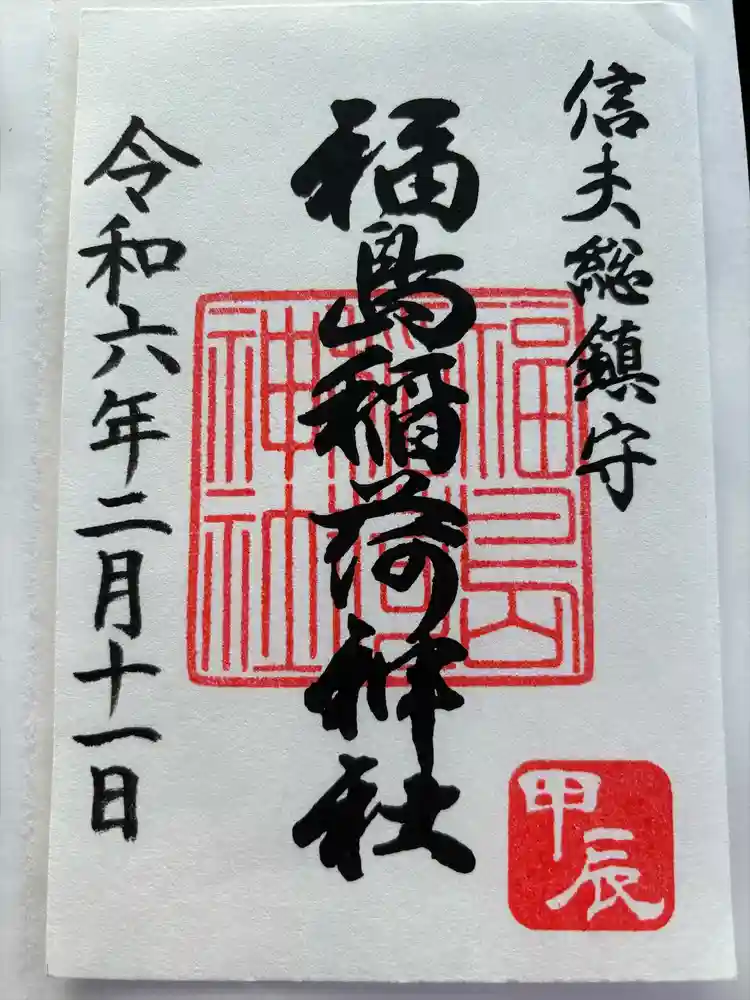 信夫総鎮守
福島稲荷神社
令和六年二月十一日
福島稲荷神社
甲辰